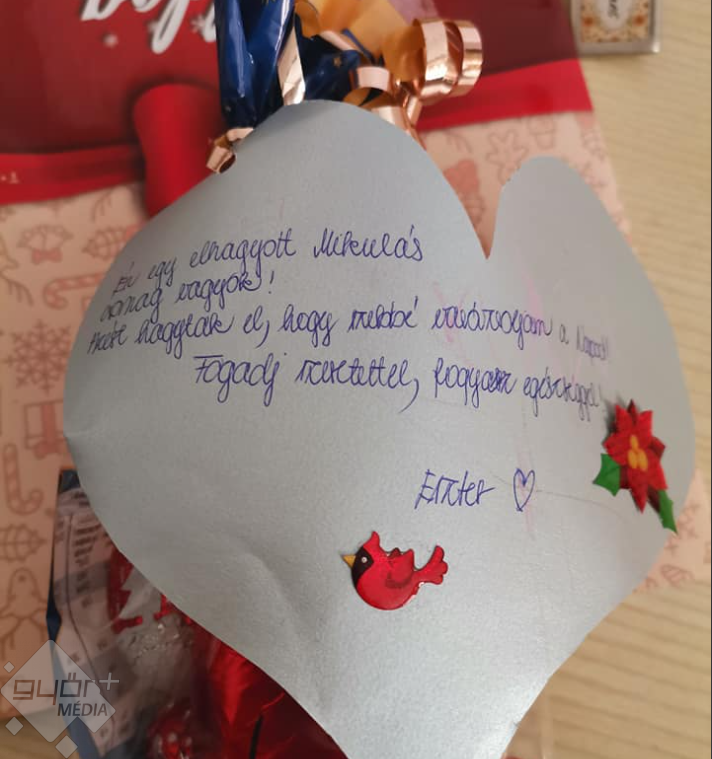 Én egy elhagyott Mikulás
csomag vagyok!
Azért hagytak el, hogy szebbé varázsoljam a Napod!
Fogadj szeretettel, fogyassz egészséggel!
Eszter ♡
győr+
MÉDIA